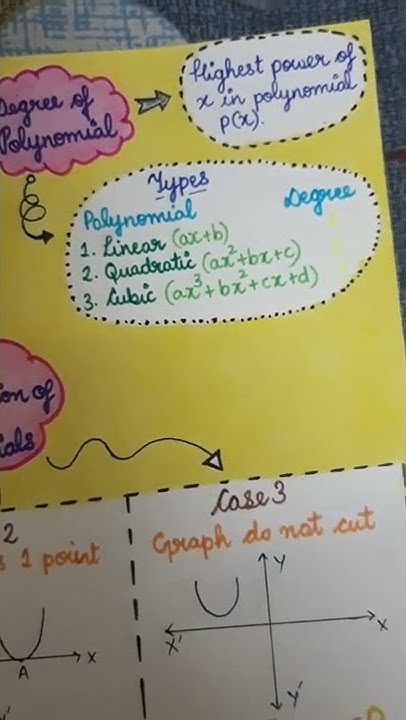 Degree of
Polynomial
Highest power of
x in polynomial
p(x).
Types
Polynomial Degree
1. Linear (ax+b)
2. Quadratic (ax²+bx+c)
3. Cubic (ax³+bx²+cx+d)
on of
ials
2
1 point
X
A
Case 3
Graph do not cut
Y
X' X
Y'